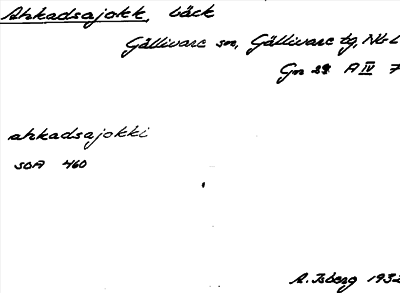 Ahkadsajokk, bäck
Gällivare sn, Gällivare tg, Nb L
Gn 29 A IV 7
ahkadsajokki
SOA 460
A. Isberg 1932